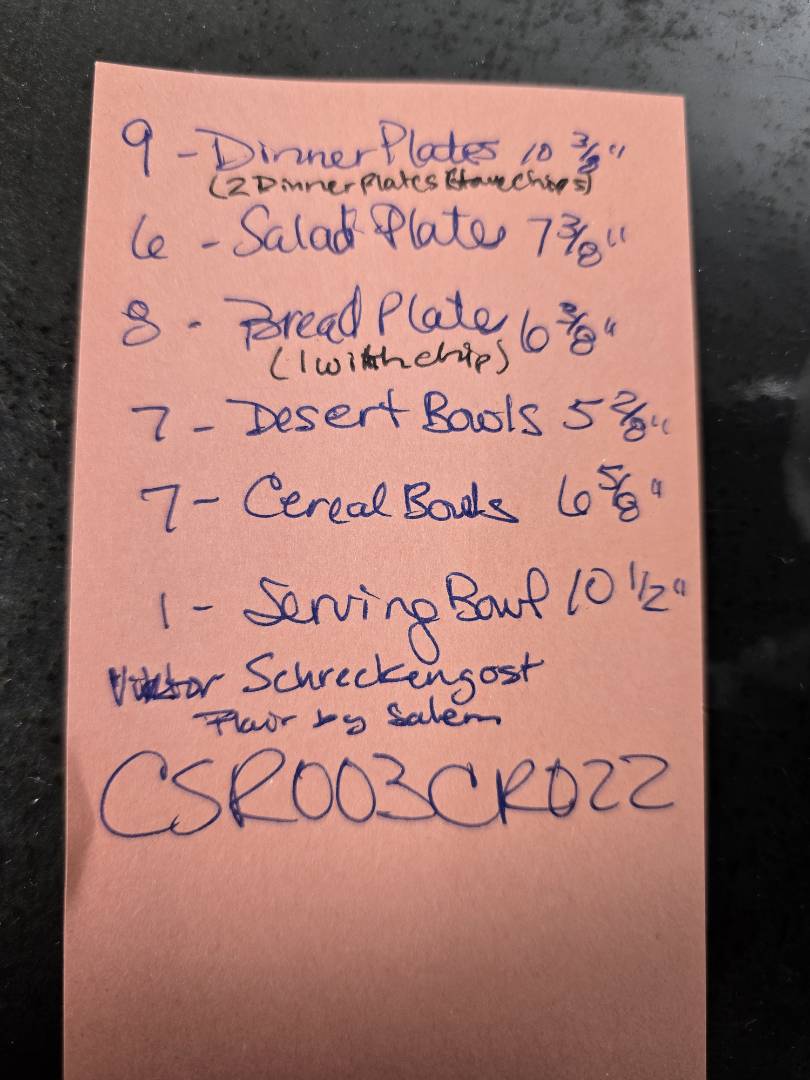 9 - Dinner Plates 10 3/8"
(2 Dinner Plates Have chips)
6 - Salad Plate 7 3/8"
8 - Bread Plate 6 3/8"
(1 with chip)
7 - Desert Bowls 5 2/8"
7 - Cereal Bowls 6 5/8"
1 - Serving Bowl 10 1/2"
Viktor Schreckengost
Flair by Salem
CSR003CR022